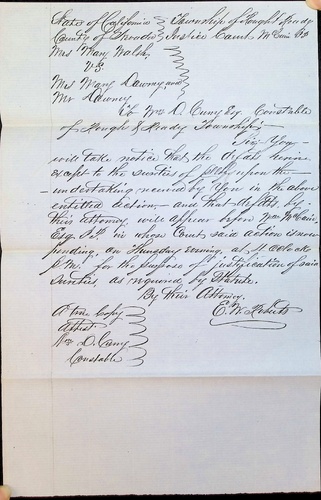 State of California } Township of Rough & Ready
County of Nevada } Justice Court. Wm Cain J.P.
Mrs Mary Walsh
V.S.
Mrs Mary Downey and
Mr Downey
To Wm D. Curry Esq. Constable
of Rough & Ready Township;—
Sir You
will take notice that the defdts herein
except to the sureties of pltff upon the
undertaking received by You in the above
entitled action; and that defdts, by
their Attorney, will appear before Wm Cain
Esq. J.P. in whose Court said action is now
pending, on Thursday Evening, at 4 oclock
P.M. for the purpose of justification of said
Sureties, as required by Statute.
By their Attorney.
A true Copy C. W.
Attest
Wm D. Curry
Constable